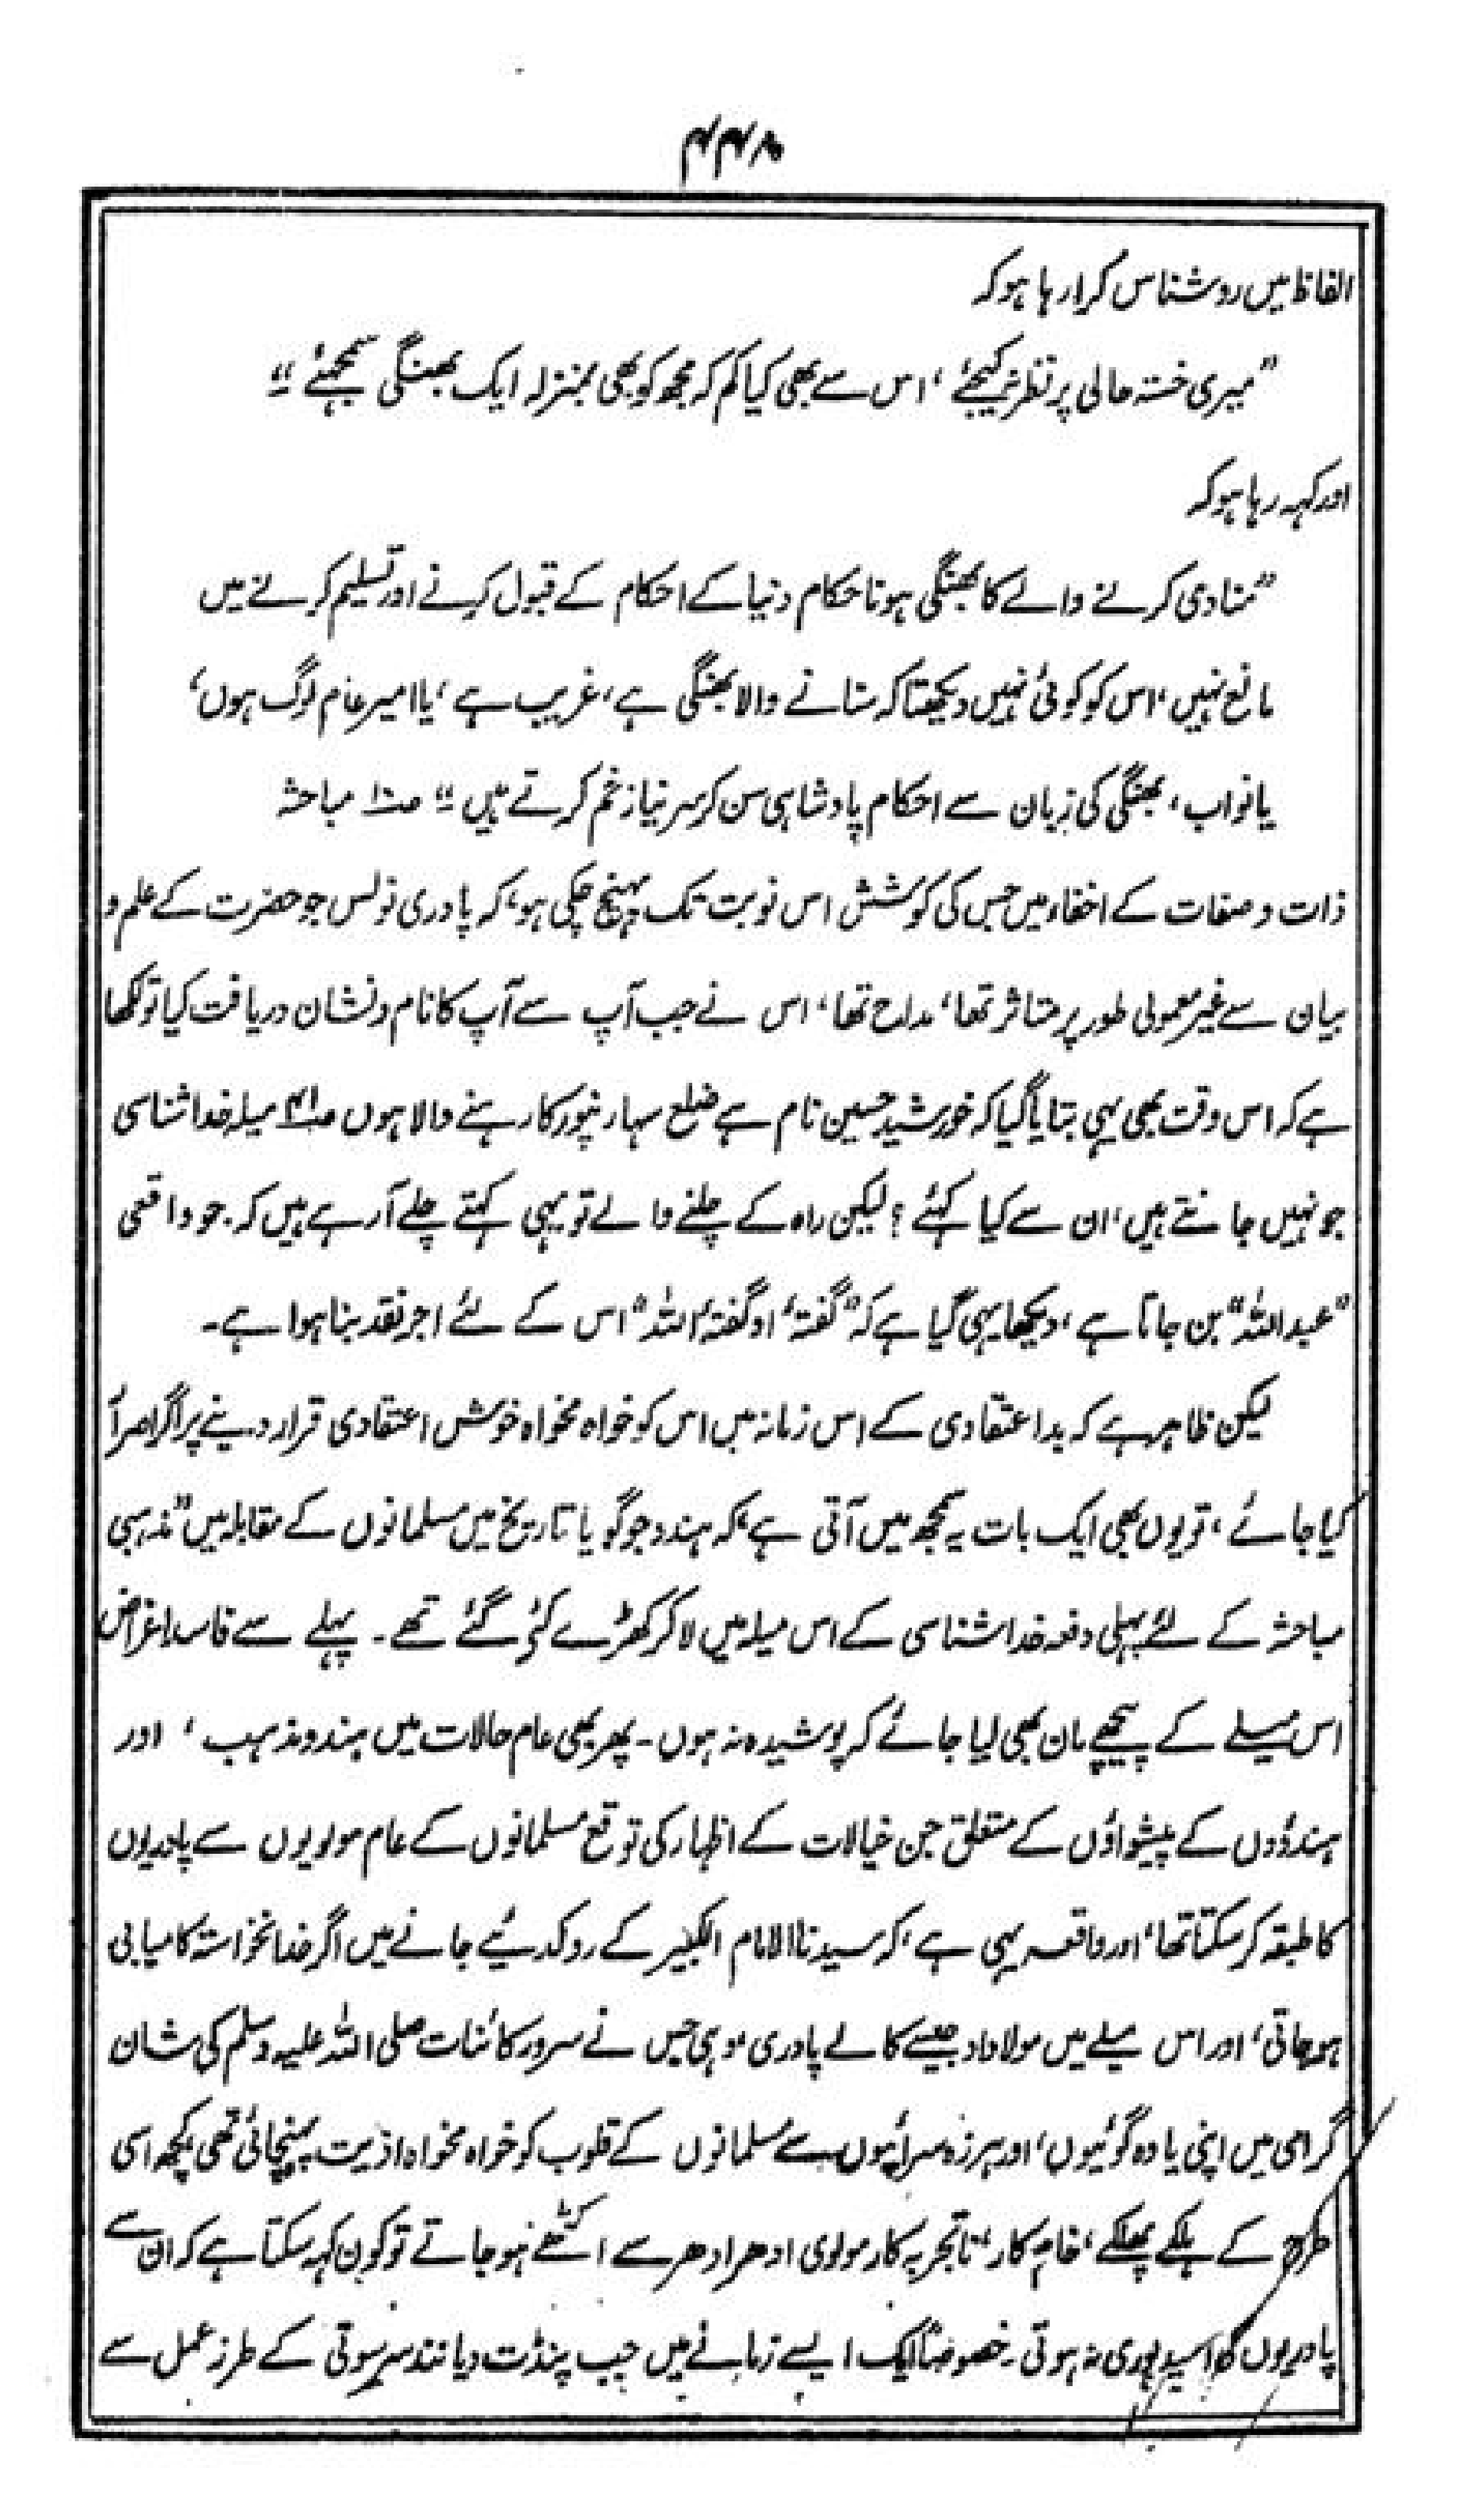 ۴۴۸
الفاظ میں روشناس کرا رہا ہو کہ
”میری خستہ حالی پر نظر نہ کیجئے، اس سے بھی کیا کم کہ مجھ کو بھی بمنزلہ ایک بھنگی سمجھئے“
اور کہہ رہا ہو کہ
”منادی کرنے والے کا بھنگی ہونا حکام دنیا کے احکام کے قبول کرنے اور تسلیم کرنے میں
مانع نہیں، اس کو کوئی نہیں دیکھتا کہ سنانے والا بھنگی ہے، غریب ہے، یا امیر عام لوگ ہوں،
یا نواب، بھنگی کی زبان سے احکام پادشاہی سن کر سر نیاز خم کرتے ہیں“ مباحثہ
ذات و صفات کے اخفاء میں جس کی کوشش اس نوبت تک پہنچ چکی ہو، کہ پادری نولس جو حضرت کے علم و
بیان سے غیر معمولی طور پر متاثر تھا، مداح تھا، اس نے جب آپ سے آپ کا نام و نشان دریافت کیا تو لکھا
ہے کہ اس وقت بھی یہی بتایا گیا کہ خورشید حسین نام ہے ضلع سہارنپور کا رہنے والا ہوں میلہ خدا شناسی
جو نہیں جانتے ہیں، ان سے کیا کہئے؟ لیکن راہ کے چلنے والے تو یہی کہتے چلے آرہے ہیں کہ۔ جو واقعی
”عبد اللہ“ بن جاتا ہے، دیکھا یہی گیا ہے کہ ”گفتہ او گفتۂ اللہ“ اس کے لئے اجر نقد بنا ہوا ہے۔
لیکن ظاہر ہے کہ بداعتقادی کے اس زمانہ میں اس کو خواہ مخواہ خوش اعتقادی قرار دینے پر اگر اصرار
کیا جائے، تو یوں بھی ایک بات یہ سمجھ میں آتی ہے، کہ ہندو جو گویا تاریخ میں مسلمانوں کے مقابلہ میں ”مذہبی
مباحثہ کے لئے پہلی دفعہ خدا شناسی کے اس میلہ میں لا کر کھڑے کئے گئے تھے۔ پہلے سے فاسد اغراض
اس میلے کے پیچھے مان بھی لیا جائے کہ پوشیدہ نہ ہوں۔ پھر بھی عام حالات میں ہندو مذہب، اور
ہندوؤں کے پیشواؤں کے متعلق جن خیالات کے اظہار کی توقع مسلمانوں کے عام مولویوں سے پادریوں
کا طبقہ کرسکتا تھا، اور واقعہ یہی ہے، کہ سیدنا الامام الکبیر کے روک دئیے جانے میں اگر خدانخواستہ کامیابی
ہوجاتی، اور اس میلے میں مولاداد جیسے کالے پادری وہی جس نے سرور کائنات صلی اللہ علیہ وسلم کی شان
گرامی میں اپنی یا وہ گوئیوں، اور ہرزہ سرائیوں سے مسلمانوں کے قلوب کو خواہ مخواہ اذیت پہنچائی تھی کچھ اسی
طرح کے ہلکے پھلکے، خام کار، ناتجربہ کار مولوی ادھر ادھر سے اکٹھے ہوجاتے تو کون کہہ سکتا ہے کہ ان سے
پادریوں کی امید پوری نہ ہوتی۔ خصوصاً ایک ایسے زمانے میں جب پنڈت دیانند سرسوتی کے طرز عمل سے